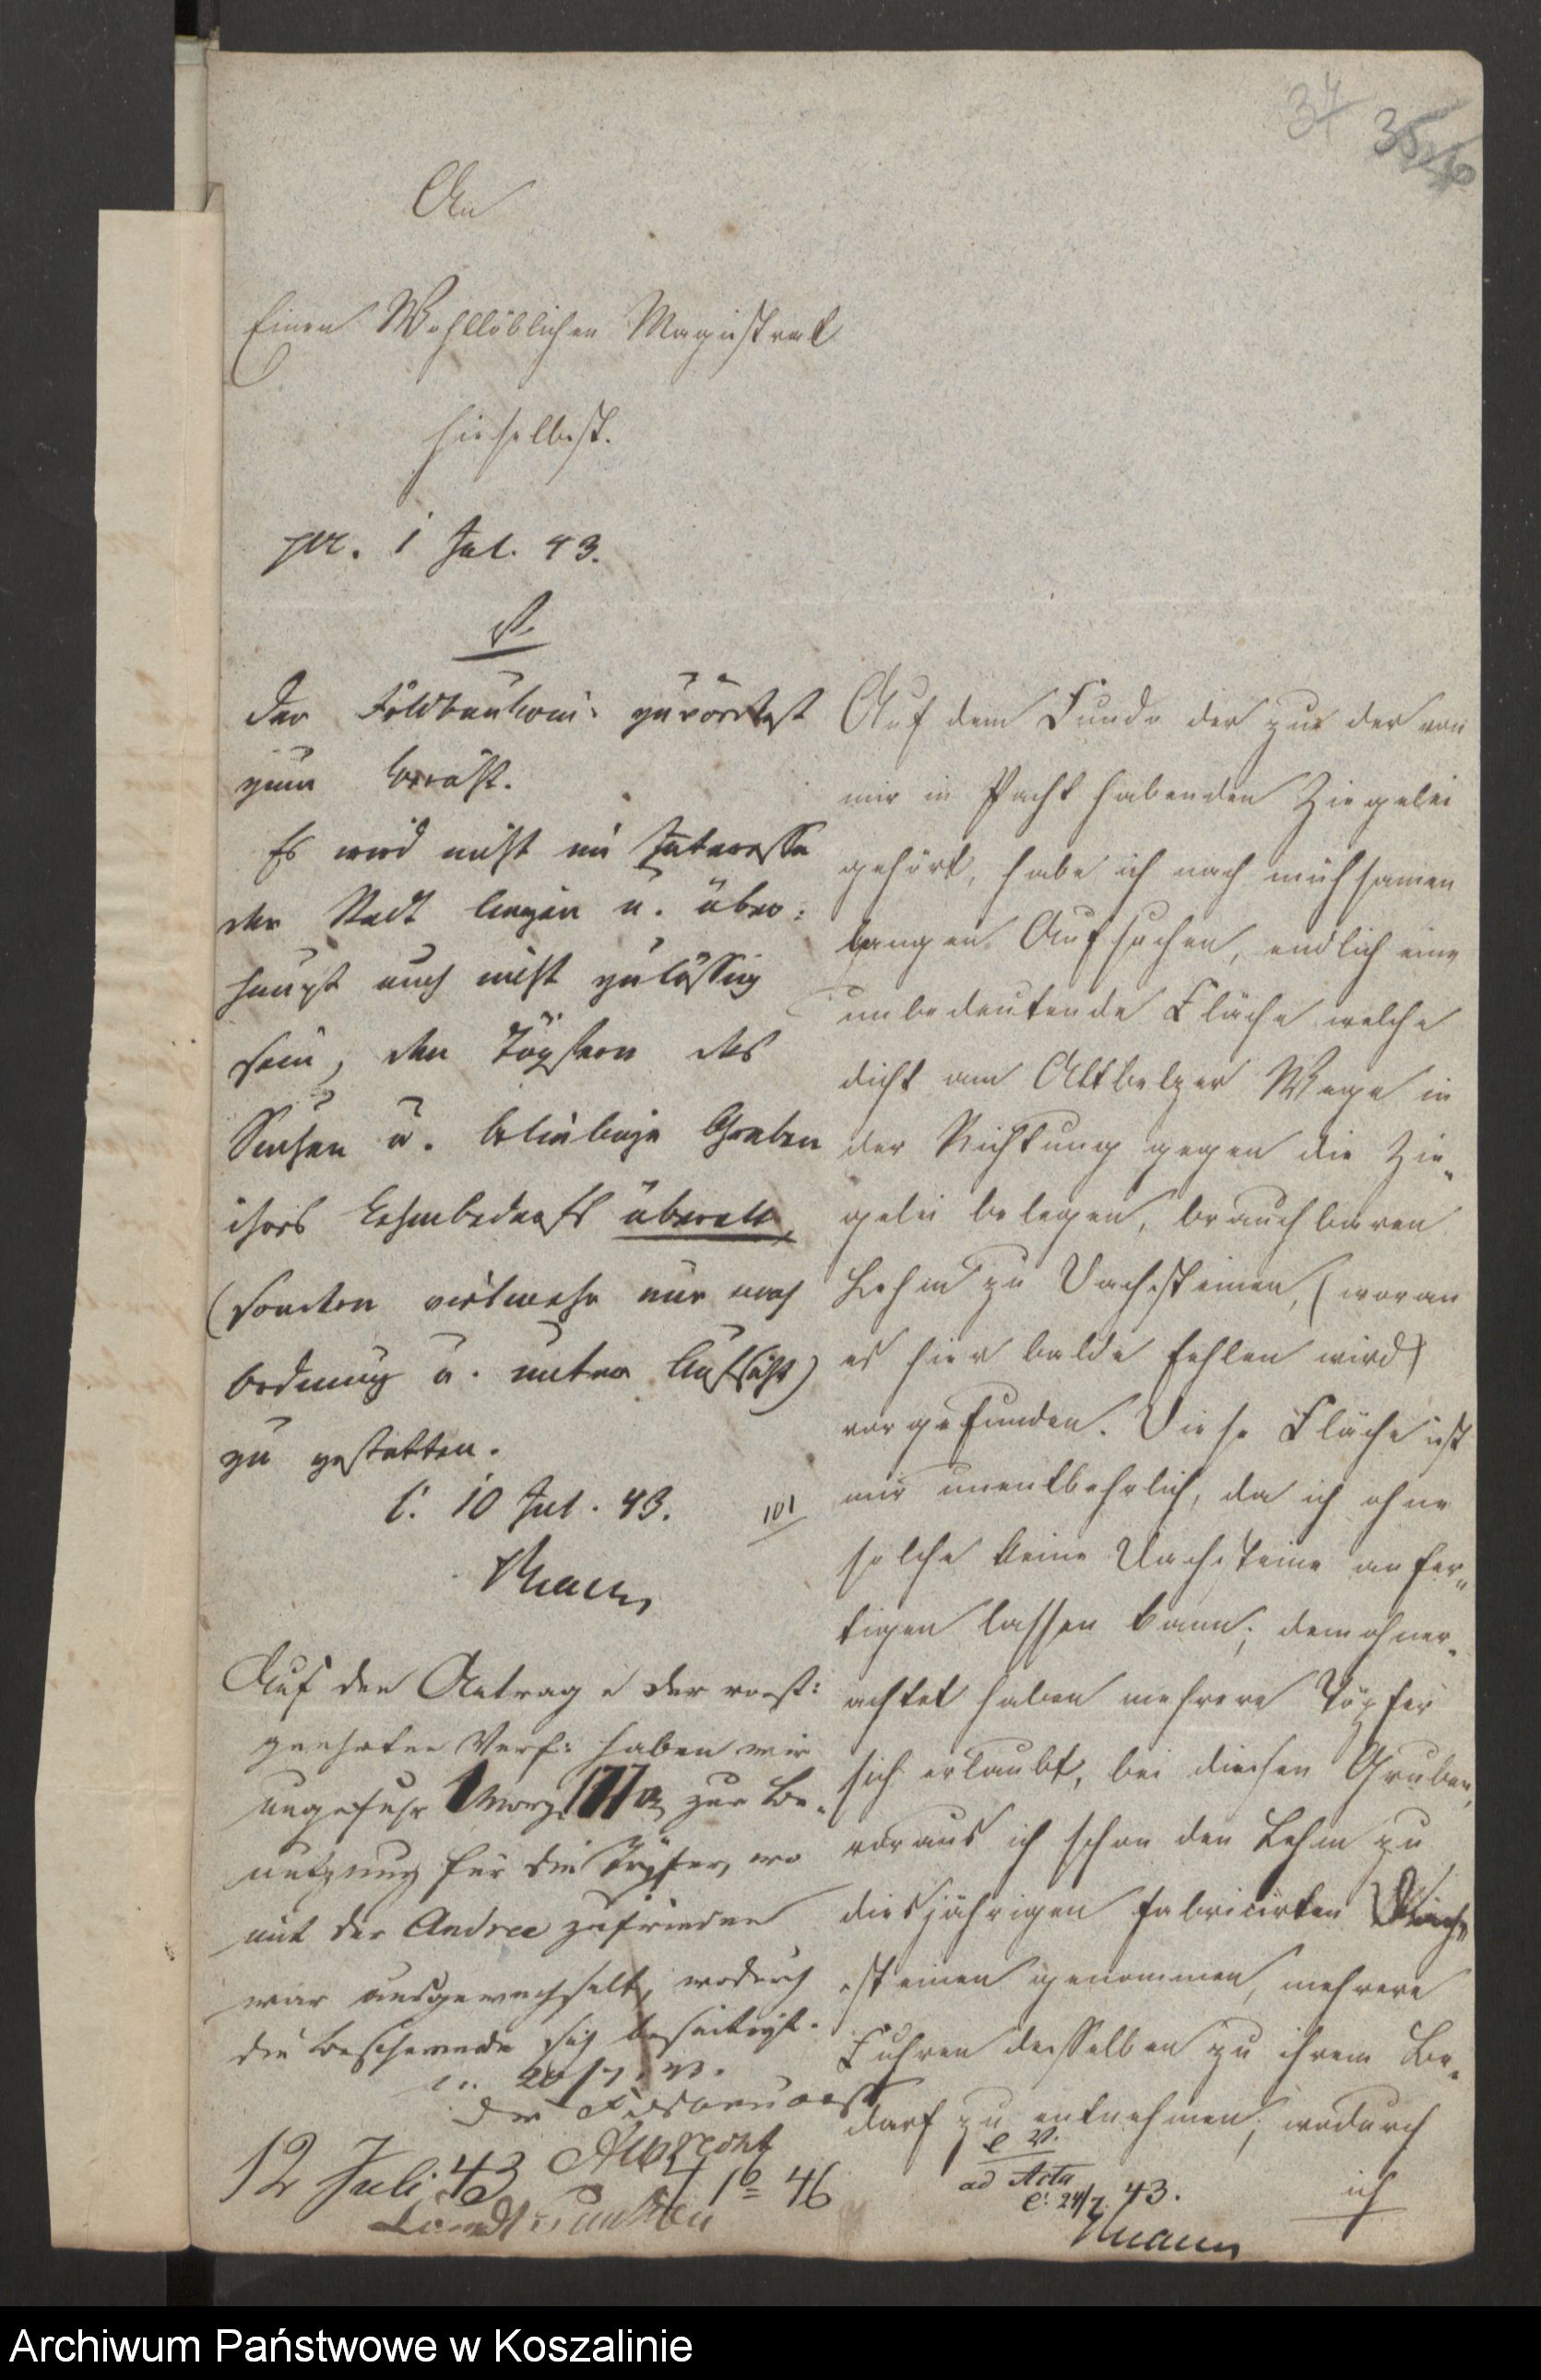 34 35
An
Einen Wohllöblichen Magistrat
hieselbst.
pr. 1 Jul. 43.
V.
Der Feldbaukom: zuvörderst
zum Bericht.
Es wird nicht im Interesse
der Stadt liegen u. über:
haupt auch nicht zulässig
sein, den Töpfern das
Suchen u. beliebige Graben
ihres Lehmbedarfs überall,
(sondern vielmehr nur nach
Ordnung u. unter Aufsicht)
zu gestatten.
C. 10 Jul. 43.
101
Auf den Antrag der vorst:
geehrten Verf: haben wir
ungefähr 1 Morg. zur Be-
nutzung für die Töpfer, wo
mit der Andree zufrieden
war ausgewechselt, wodurch
die Beschwerde sich beseitigt.
12 Juli 43
46
Auf dem Lande der zu der von
mir in Pacht habenden Ziegelei
gehört, habe ich nach mühsamen
langen Aufsuchen, endlich eine
unbedeutende Fläche welche
dicht am Altbelzer Wege in
der Richtung gegen die Zie-
gelei belegen, brauchbaren
Lehm zu Dachsteinen, (woran
es hier balde fehlen wird)
vorgefunden. Diese Fläche ist
mir unentbehrlich, da ich ohne
solche keine Dachsteine anfer-
tigen lassen kann; demohner-
achtet haben mehrere Töpfer
sich erlaubt, bei diesen Gruben,
woraus ich schon den Lehm zu
diesjährigen fabricirten Dach-
steinen genommen, mehrere
Fuhren desselben zu ihrem Be-
darf zu entnehmen; wodurch
ich
e V.
ad Acta
C. 24/7. 43.
Archiwum Państwowe w Koszalinie